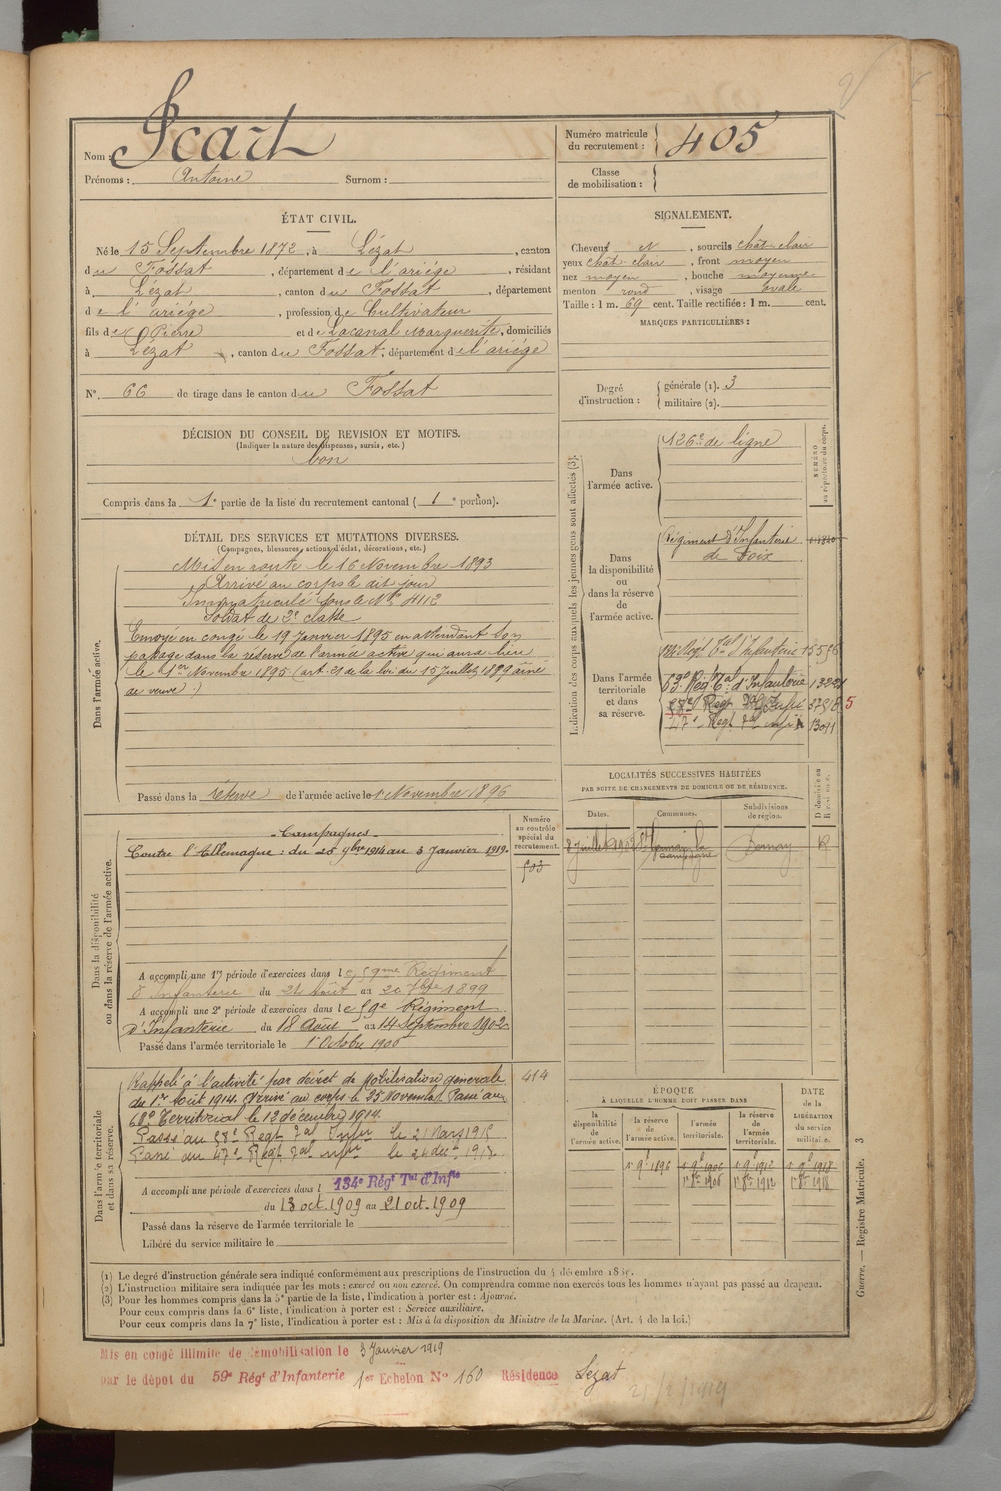 Nom : Icart
Prénoms : Antoine Surnom :
Numéro matricule du recrutement : 405
Classe de mobilisation :
ÉTAT CIVIL.
Né le 15 Septembre 1872, à Lézat, canton
du Fossat, département de l'ariège, résidant
à Lézat, canton du Fossat, département
de l'ariège, profession de Cultivateur
fils de Pierre et de Lacanal Marguerite, domiciliés
à Lézat, canton du Fossat, département de l'ariège
N° 66 de tirage dans le canton du Fossat
DÉCISION DU CONSEIL DE REVISION ET MOTIFS.
(Indiquer la nature des dispenses, sursis, etc.)
bon
Compris dans la 1e partie de la liste du recrutement cantonal (1e portion).
SIGNALEMENT.
Cheveux et, sourcils chât. clair
yeux chât. clair, front moyen
nez moyen, bouche moyenne
menton rond, visage ovale
Taille : 1 m. 69 cent. Taille rectifiée : 1 m. cent.
MARQUES PARTICULIÈRES :
Degré d'instruction : générale (1). 3
militaire (2).
Indication des corps auxquels les jeunes gens sont affectés (3).
NUMÉRO au répertoire du corps.
Dans l'armée active.
126e de ligne
Dans la disponibilité ou dans la réserve de l'armée active.
Régiment d'Infanterie
de Foix
Dans l'armée territoriale et dans sa réserve.
Régt Tal d'Infanterie
63e Régt Tal d'Infanterie
47e Régt Tal infie 13091
DÉTAIL DES SERVICES ET MUTATIONS DIVERSES.
(Campagnes, blessures, actions d'éclat, décorations, etc.)
Dans l'armée active.
Mis en route le 16 Novembre 1893
Arrivé au corps le dit jour
Immatriculé sous le N° 4112
Soldat de 2e classe
Envoyé en congé le 19 Janvier 1895 en attendant son
passage dans la réserve de l'armée active qui aura lieu
le 1er Novembre 1895 (art. 21 de la loi du 15 Juillet 1889 aîné
de veuve.)
Passé dans la réserve de l'armée active le 1er Novembre 1896
LOCALITÉS SUCCESSIVES HABITÉES
PAR SUITE DE CHANGEMENTS DE DOMICILE OU DE RÉSIDENCE.
Dates. Communes. Subdivisions de région. D domicile ou R résidence.
8 Juillet campagne Bernay R
Dans la disponibilité ou dans la réserve de l'armée active.
Numéro au contrôle spécial du recrutement.
503
Campagnes
Contre l'Allemagne : du 25 9bre 1914 au 3 Janvier 1919.
A accompli une 1re période d'exercices dans le 59me Régiment
d'Infanterie du 24 Août au 20 7bre 1899
A accompli une 2e période d'exercices dans le 59e Régiment
d'Infanterie du 18 Août au 14 Septembre 1902
Passé dans l'armée territoriale le 1er Octobre 1906
Dans l'armée territoriale et dans sa réserve.
414
Rappelé à l'activité par décret de Mobilisation générale
du 1er Août 1914. Arrivé au corps le 25 Novembre. Passé au
Territorial le 12 décembre 1914.
Passé au Régt Tal Infie le 21 Mars 1915
Passé au 47e Régt Tal infie le
A accompli une période d'exercices dans l 134e Régt Tal d'Infie
du 13 oct. 1909 au 21 oct. 1909
Passé dans la réserve de l'armée territoriale le
Libéré du service militaire le
ÉPOQUE
À LAQUELLE L'HOMME DOIT PASSER DANS
la disponibilité de l'armée active. la réserve de l'armée active. l'armée territoriale. la réserve de l'armée territoriale.
DATE de la LIBÉRATION du service militaire.
1er 9e 1896 1er 9e 1906 1er 9e 1912 1er 9e 1918
1er 8e 1906 1er 8e 1912 1er 8e 1918
(1) Le degré d'instruction générale sera indiqué conformément aux prescriptions de l'instruction du 4 décembre
(2) L'instruction militaire sera indiquée par les mots : exercé ou non exercé. On comprendra comme non exercés tous les hommes n'ayant pas passé au drapeau.
(3) Pour les hommes compris dans la 5e partie de la liste, l'indication à porter est : Ajourné.
Pour ceux compris dans la 6e liste, l'indication à porter est : Service auxiliaire.
Pour ceux compris dans la 7e liste, l'indication à porter est : Mis à la disposition du Ministre de la Marine. (Art. 4 de la loi.)
Guerre. — Registre Matricule. 3
Mis en congé illimité de démobilisation le 3 Janvier 1919
par le dépôt du 59e Régt d'Infanterie 1er Echelon N° 160 Résidence Lézat